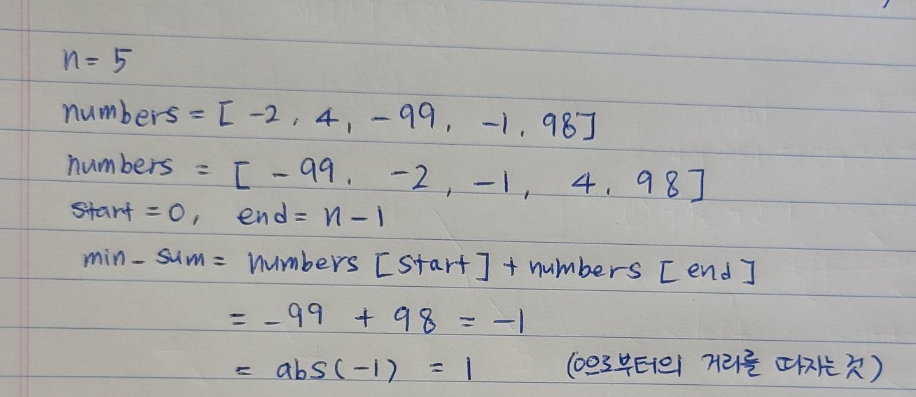 n = 5
numbers = [ -2, 4, -99, -1, 98]
numbers = [ -99, -2, -1, 4, 98]
start = 0, end = n-1
min_sum = numbers [start] + numbers [end]
= -99 + 98 = -1
= abs(-1) = 1 (0으로부터의 거리를 따지는 것)